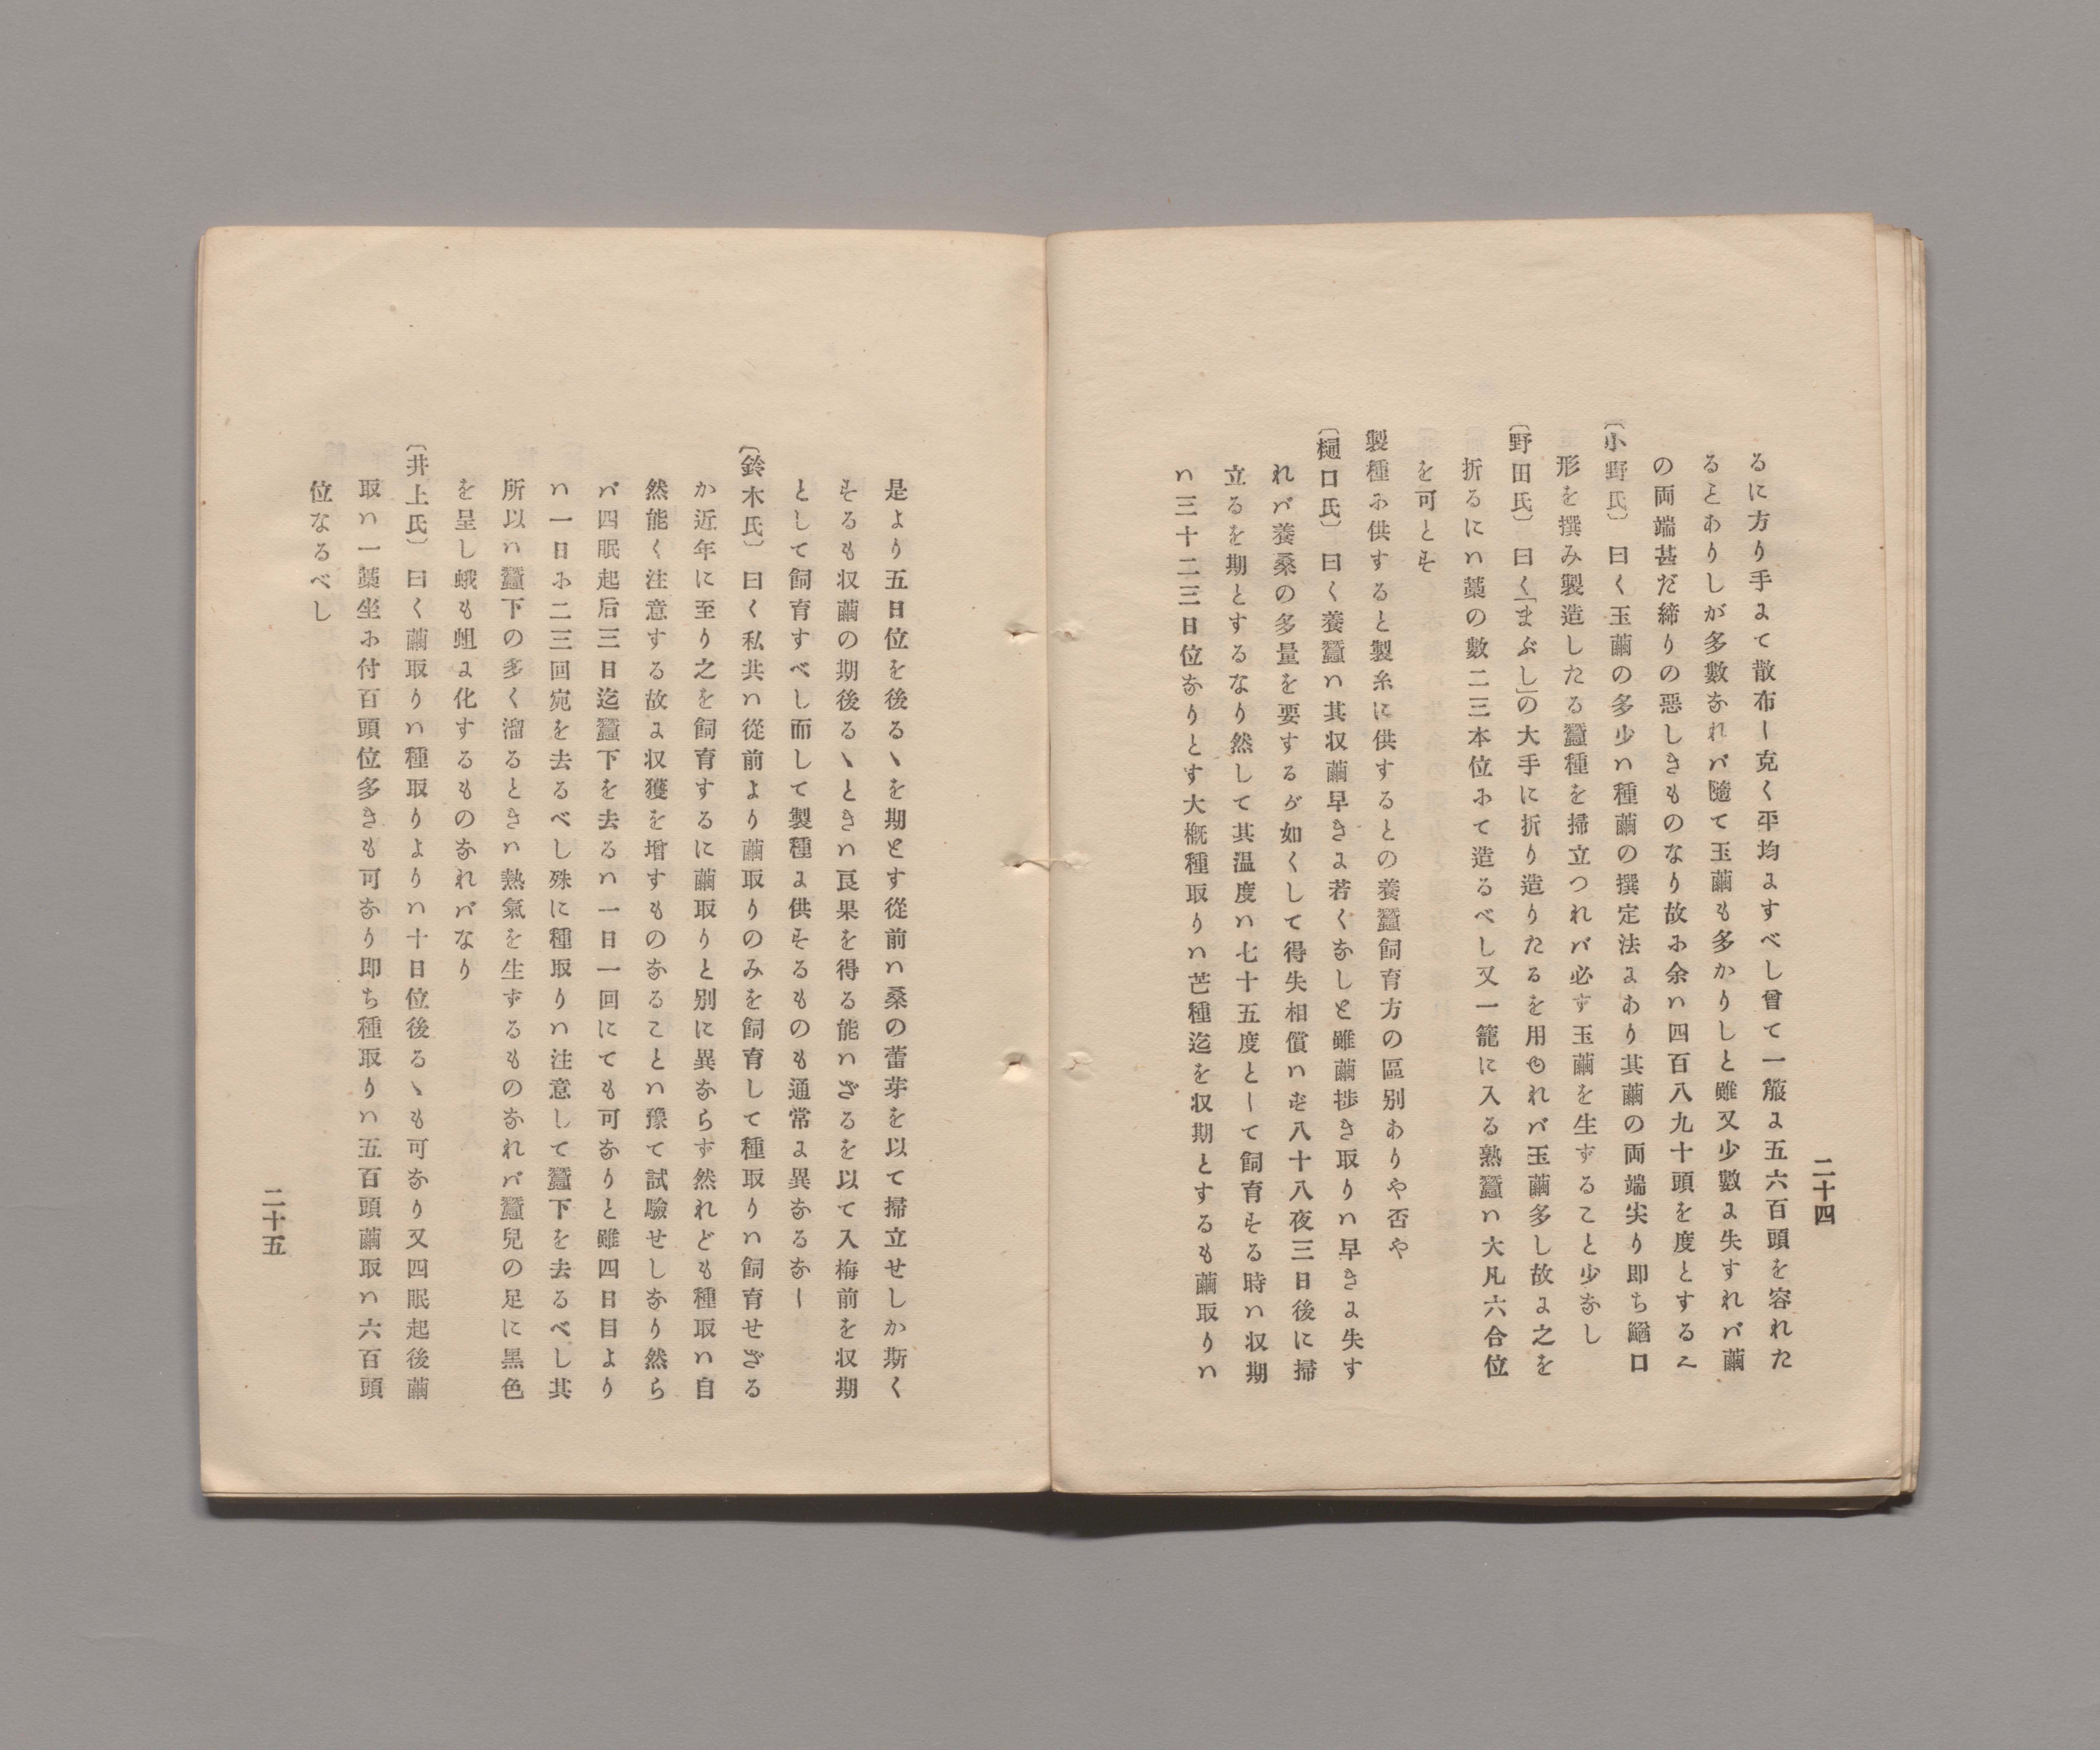 二十四
るに方り手にて散布し克く平均にすべし曾て一箙に五六百頭を容れた
るとありしが多數なれバ隨て玉繭も多かりしと雖又少數に失すれバ繭
の両端甚だ締りの惡しきものなり故に余ハ四百八九十頭を度とするに
〔小野氏〕曰く玉繭の多少ハ種繭の撰定法にあり其繭の両端尖り即ち鯔口
形を撰み製造したる蠶種を掃立つれバ必す玉繭を生ずること少なし
〔野田氏〕曰く「まぶし」の大手に折り造りたるを用ゆれバ玉繭多し故に之を
折るにハ藁の數二三本位にて造るべし又一籠に入る熟蠶ハ大凡六合位
を可とす
製種に供すると製糸に供するとの養蠶飼育方の區别ありや否や
〔樋口氏〕曰く養蠶ハ其収繭早きに若くなしと雖繭捗き取りハ早きに失す
れバ養桑の多量を要するが如くして得失相償ハず八十八夜三日後に掃
立るを期とするなり然して其温度ハ七十五度として飼育する時ハ収期
ハ三十二三日位なりとす大概種取りハ芒種迄を収期とするも繭取りハ
是より五日位を後るヽを期とす從前ハ桑の蕾芽を以て掃立せしか斯く
するも収繭の期後るヽときハ良果を得る能ハざるを以て入梅前を収期
として飼育すべし而して製種に供するものも通常に異なるなし
〔鈴木氏〕曰く私共ハ從前より繭取りのみを飼育して種取りハ飼育せざる
か近年に至り之を飼育するに繭取りと別に異ならず然れども種取ハ自
然能く注意する故に収獲を增すものなることハ豫て試驗せしなり然ら
バ四眠起后三日迄蠶下を去るハ一日一回にても可なりと雖四日目より
ハ一日に二三回宛を去るべし殊に種取りハ注意して蠶下を去るべし其
所以ハ蠶下の多く溜るときハ熱氣を生ずるものなれバ蠶兒の足に黒色
を呈し蛾も蛆に化するものなれバなり
〔井上氏〕曰く繭取りハ種取りよりハ十日位後るヽも可なり又四眠起後繭
取ハ一藁坐に付百頭位多きも可なり即ち種取りハ五百頭繭取ハ六百頭
位なるべし
二十五